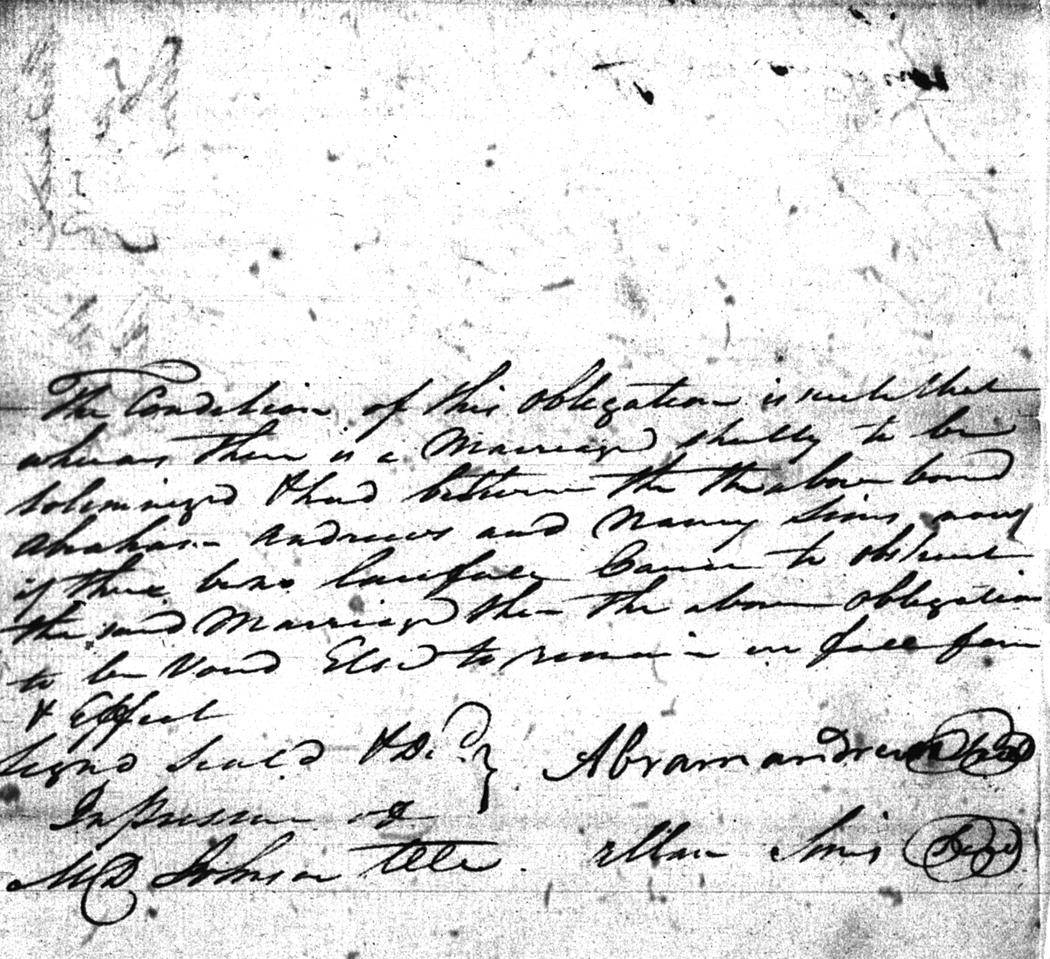 The Condition of this obligation is such that
whereas there is a Marriage shortly to be
Solemnized & had between the the above bond
Abraham Andrews and Nancy Sims now
if there be no lawfull Cause to obstruct
the said Marriage then the above obligation
to be Void Else to remain in full force
& Effect
Signd Seal'd & Del'd
In presence of
M D Johnson
Abram andrews Seal
Allan Sims Seal